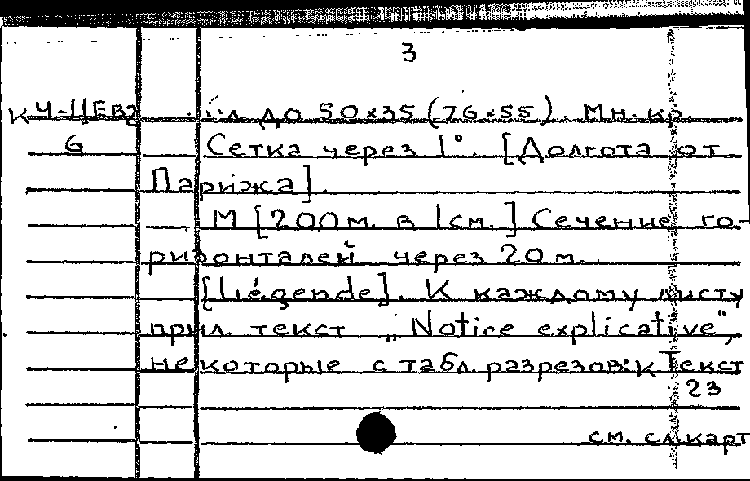 3
К Ч-ЦЕВ2 л до 50×35 (76×55). Мн. кр.
6 Сетка через 1°. [Долгота от
Парижа].
М [200 м. в 1 см.] Сечение го-
ризонталей через 20 м.
[Liégende]. К каждому листу
прил. текст „Notice explicative",
некоторые с табл. разрезов: к Текст
23
см. сл. карт